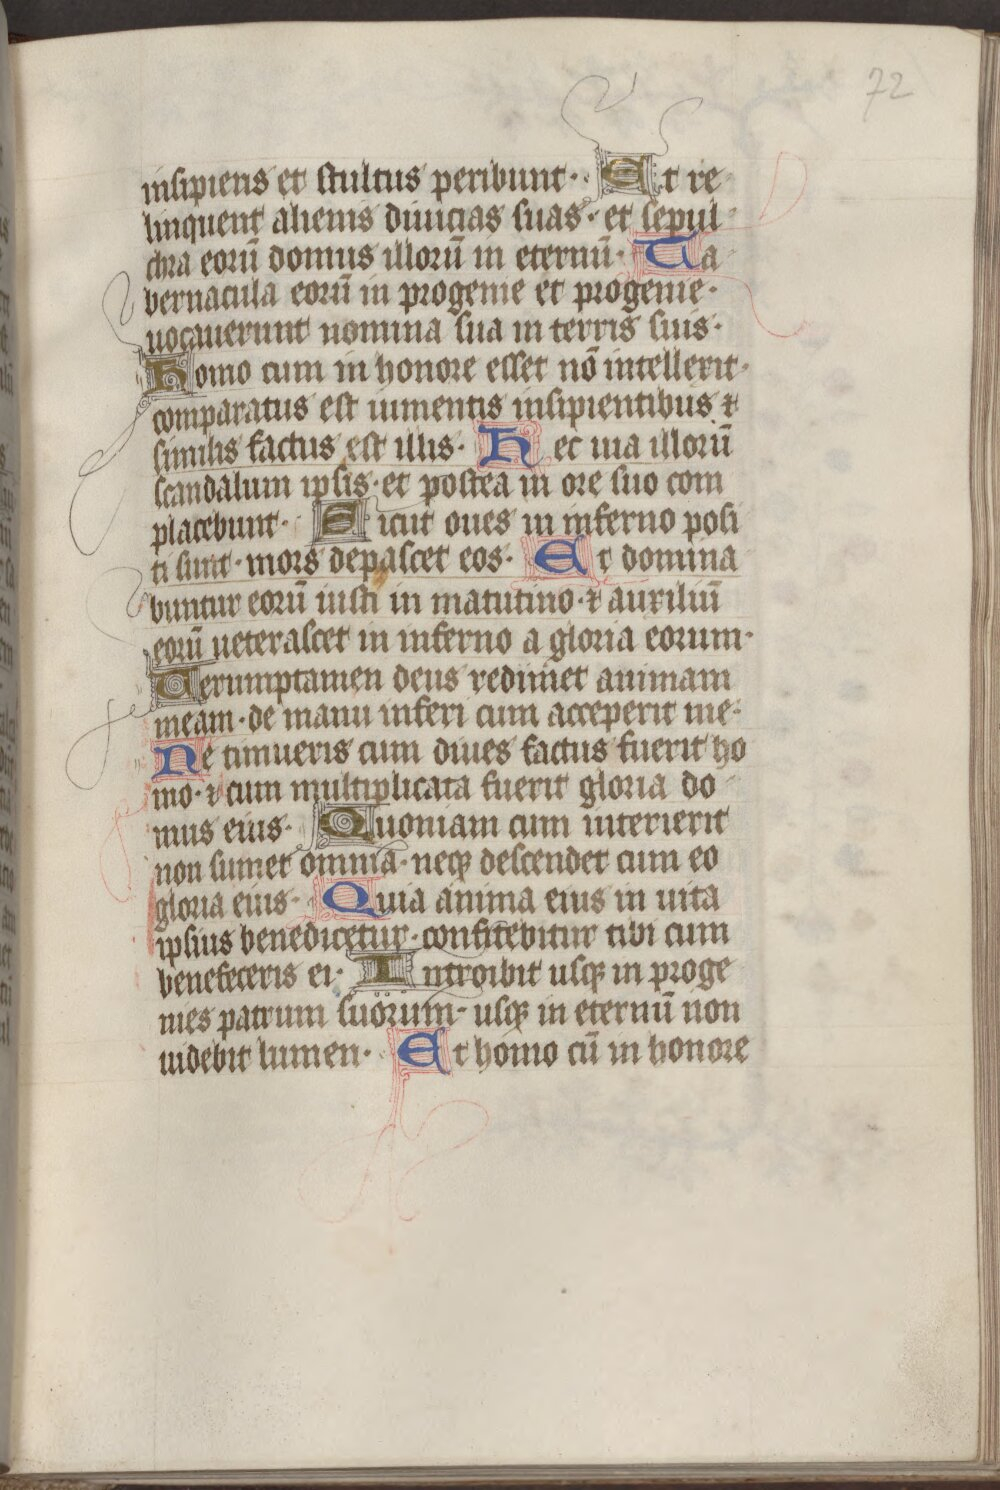 72
insipiens et stultus peribunt· Et re
linquent alienis diuicias suas· et sepul
chra eorū domus illorū in eternū· Ta
bernacula eorū in progenie et progenie·
uocauerunt nomina sua in terris suis·
Homo cum in honore esset nō intellexit·
comparatus est iumentis insipientibus ⁊
similis factus est illis· Hec uia illorū
scandalum ipsis· et postea in ore suo com
placebunt· Sicut oues in inferno posi
ti sunt· mors depascet eos· Et domina
buntur eorū iusti in matutino· ⁊ auxiliū
eorū ueterascet in inferno a gloria eorum·
Uerumptamen deus redimet animam
meam· de manu inferi cum acceperit me·
Ne timueris cum diues factus fuerit ho
mo· ⁊ cum multiplicata fuerit gloria do
mus eius· Quoniam cum interierit
non sumet omnia· neqꝫ descendet cum eo
gloria eius· Quia anima eius in uita
ipsius benedicetur· confitebitur tibi cum
benefeceris ei· Introibit usqꝫ in proge
nies patrum suorum· usqꝫ in eternū non
uidebit lumen· Et homo cū in honore